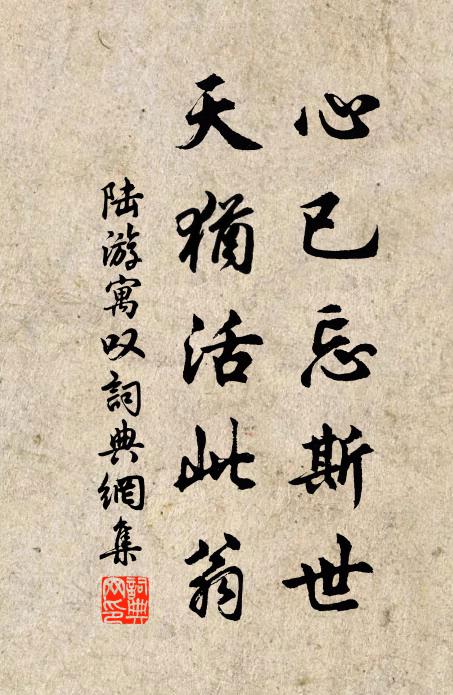 心已忘斯世
天猶活此翁
陆游寓叹詞典網集
詞典网印